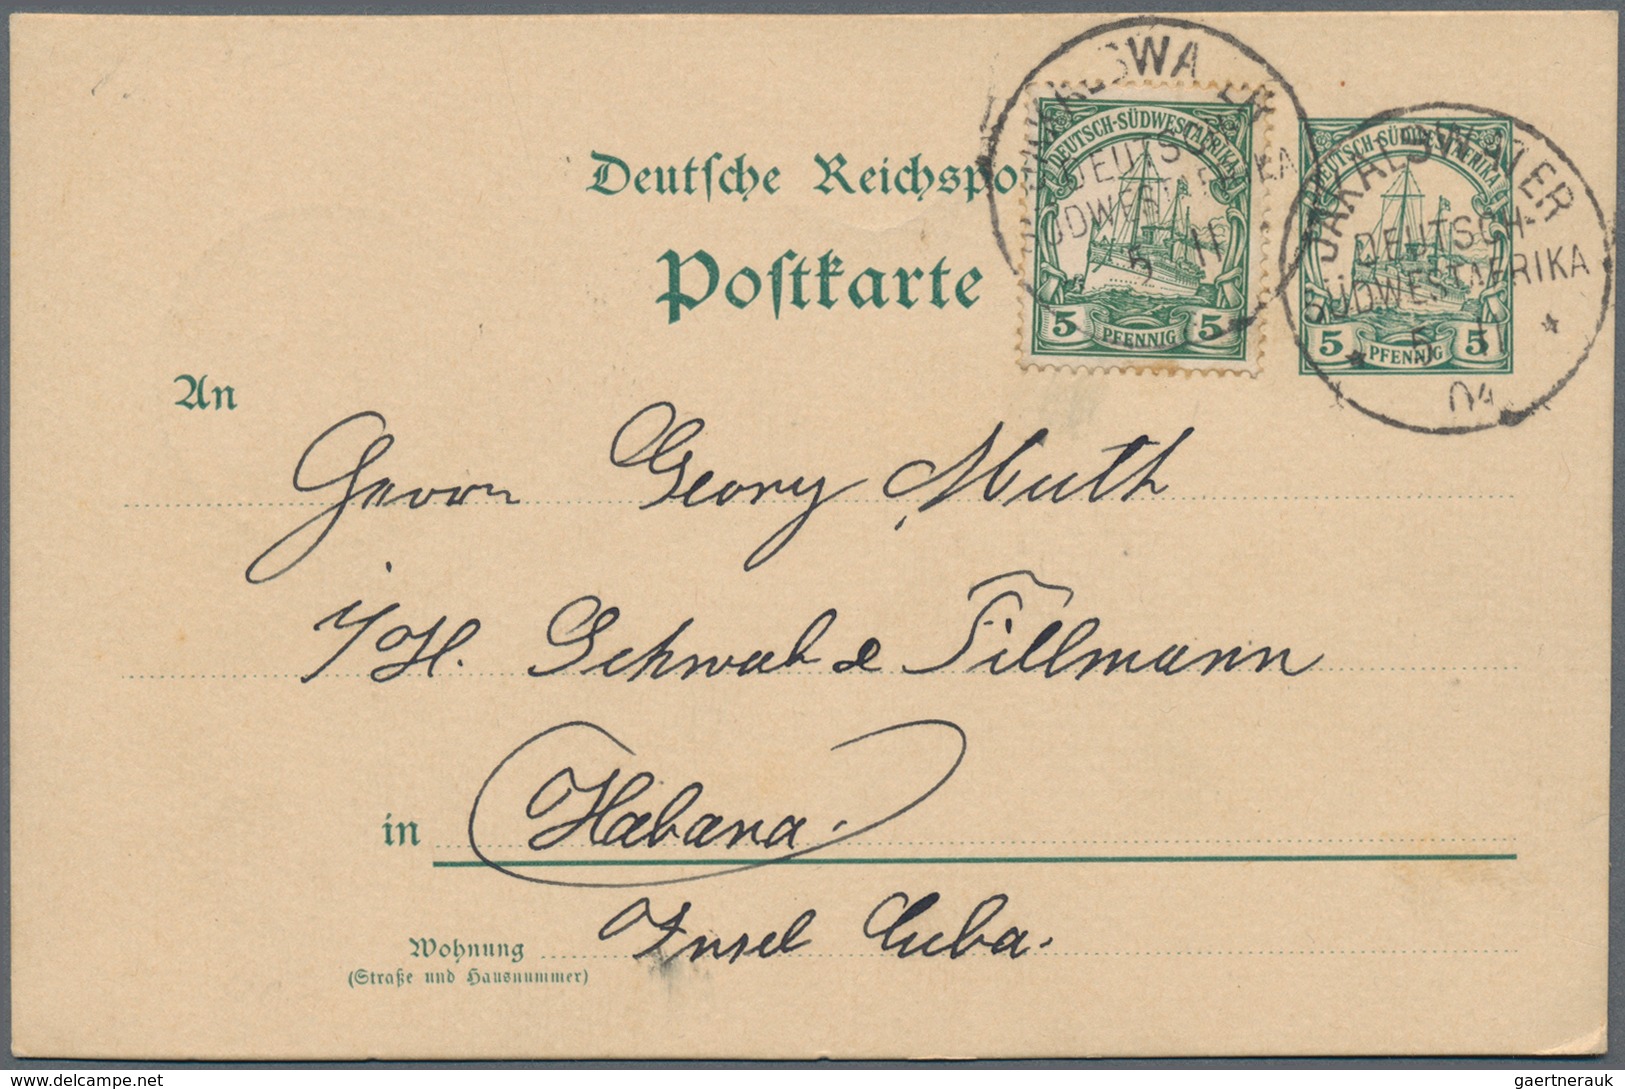 Deutsche Reichspo
Postkarte
DEUTSCH-SÜDWESTAFRIKA
5 PFENNIG 5
DEUTSCH-SÜDWESTAFRIKA
5 PFENNIG 5
JAKALSWATER
DEUTSCH-
SÜDWESTAFRIKA
5 11
04
An
Herrn Georg Muth
i/H. Schwab & Tillmann
in Habana.
Insel Cuba.
Wohnung
(Straße und Hausnummer)
delcampe.net
gaertnerauk